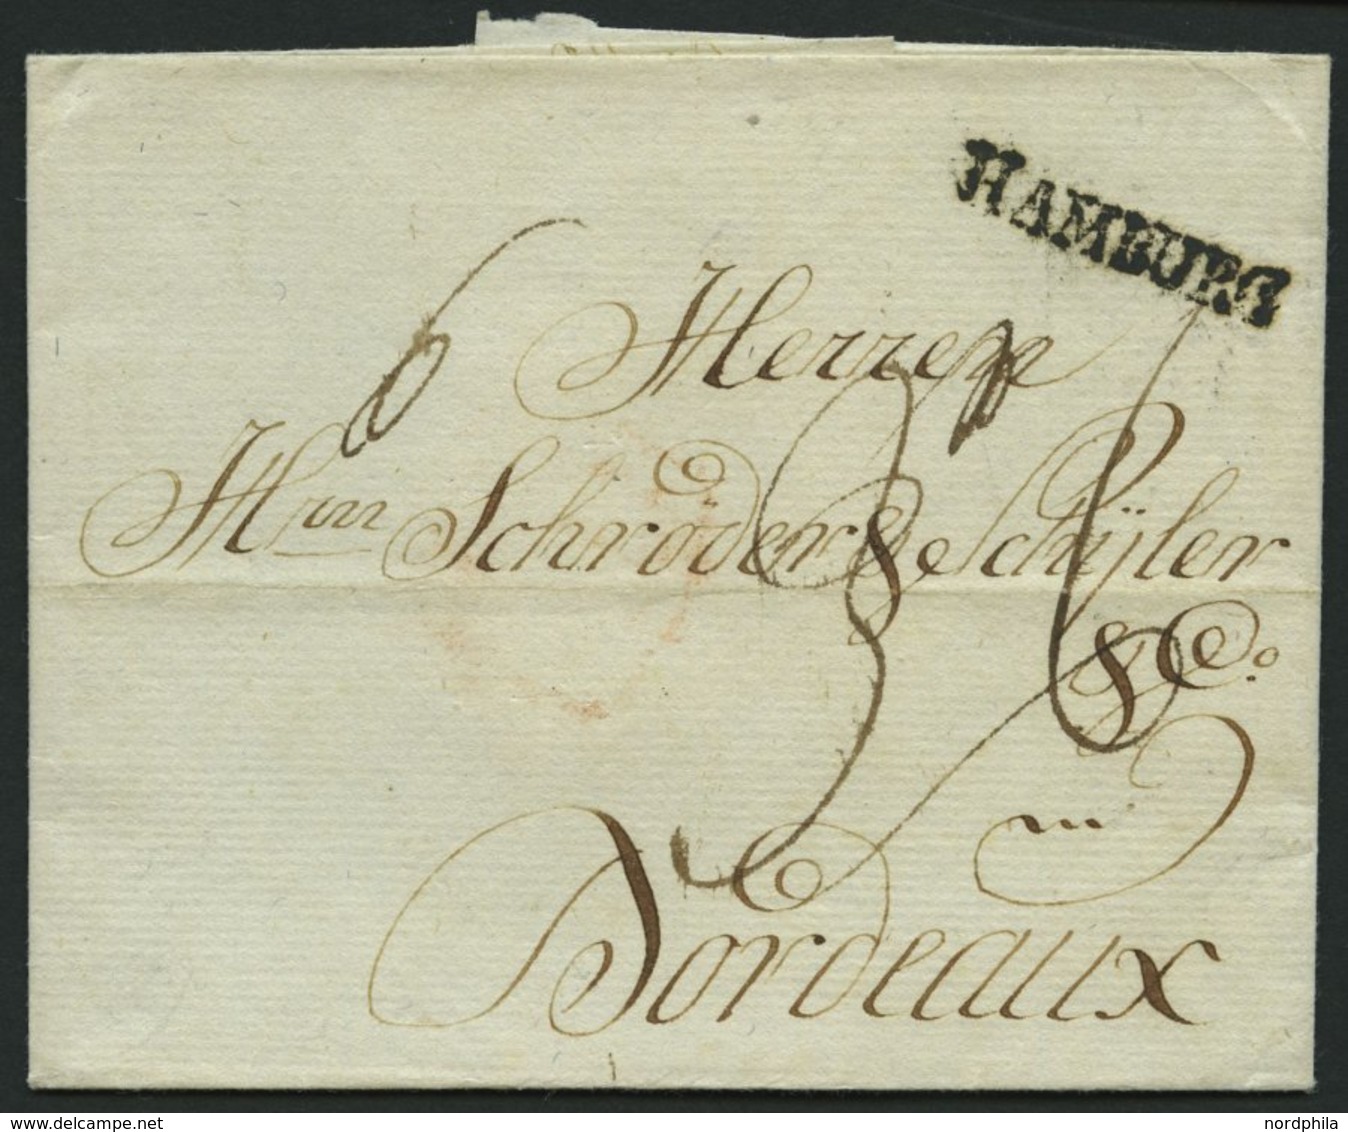 HAMBURG
Herren
Hrn Schröder & Schÿler
& Co.
in
Bordeaux
www.delcampe.net
nordphila